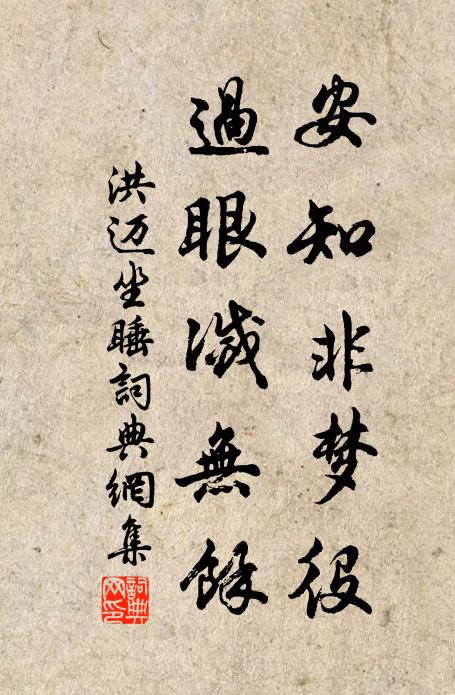 安知非梦役
過眼滅無餘
洪迈坐睡詞典網集
詞典网印